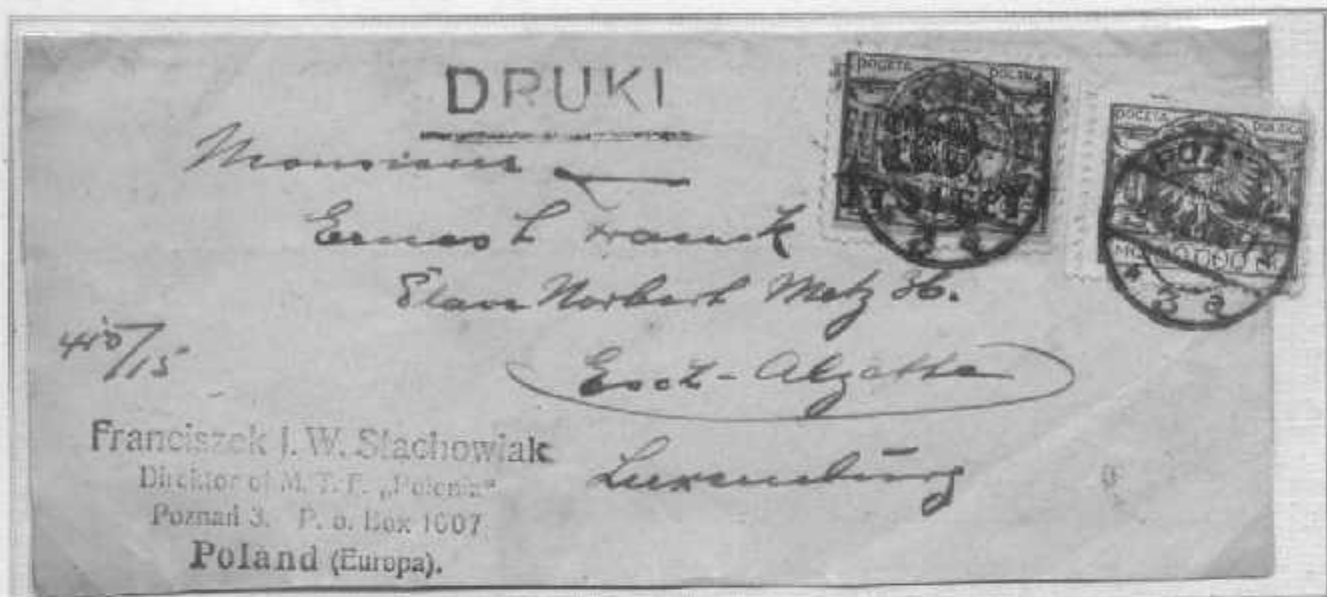 DRUKI
Monsieur
Ernest Franck
Norbert Metz 36.
Esch-Alzette
Luxemburg
Franciszek J. W. Stachowiak
Direktor of M. T. F. „Polonia"
Poznań 3. P. o. Box 1007
Poland (Europa).
POCZTA POLSKA
POCZTA POLSKA